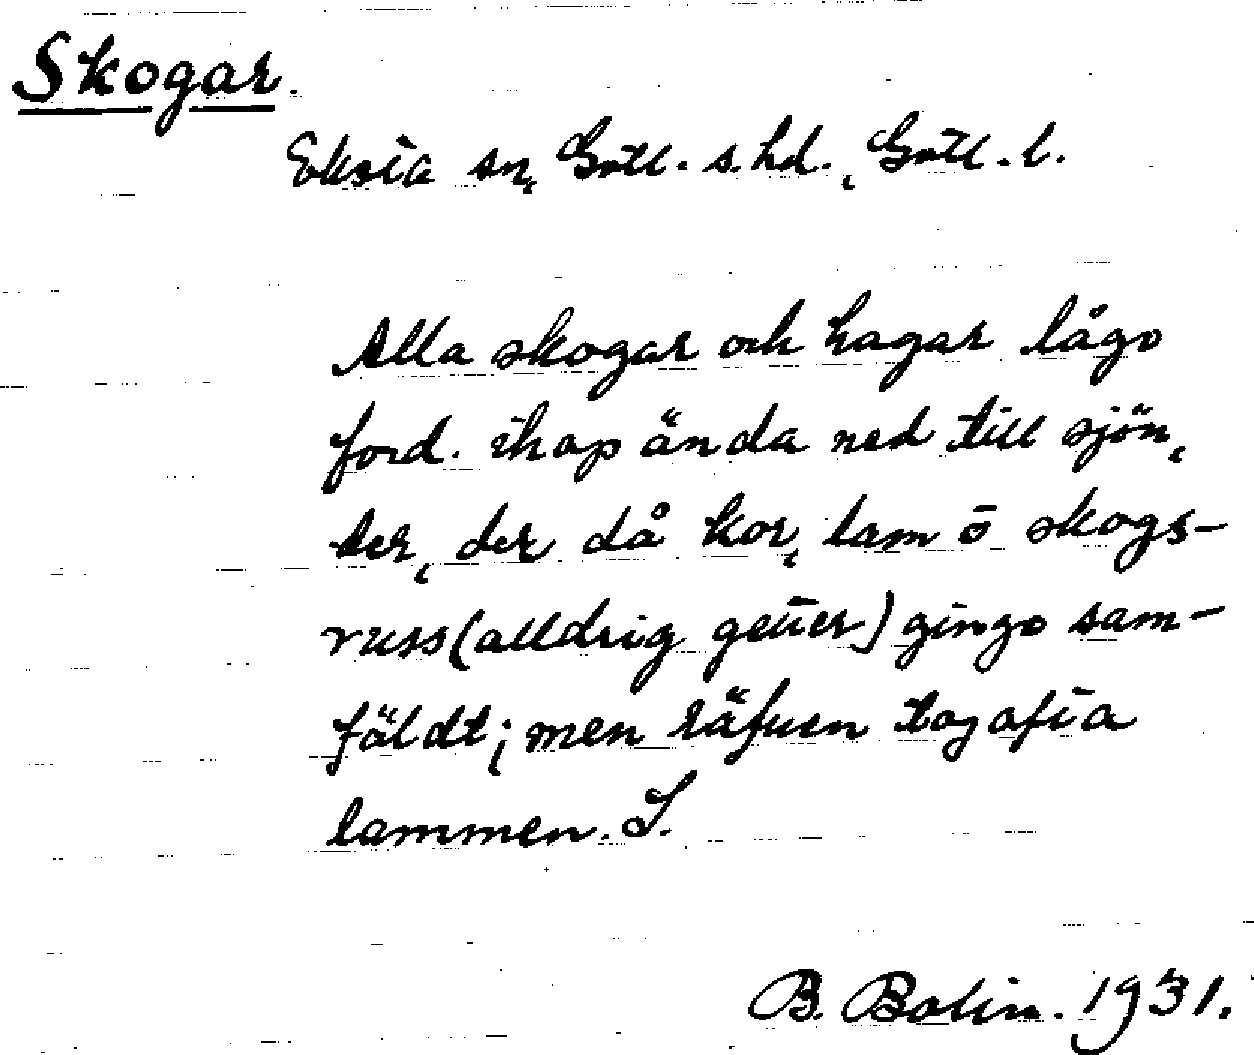 Skogar.
Eksta sn, Gotl. s. hd., Gotl. l.
Alla skogar och hagar lågo
ford. ihop ända ned till sjön,
der, der då kor, lam ō skogs-
russ (alldrig getter) gingo sam-
fäldt; men räfven tog ofta
lammen. S.
B. Bolin. 1931.